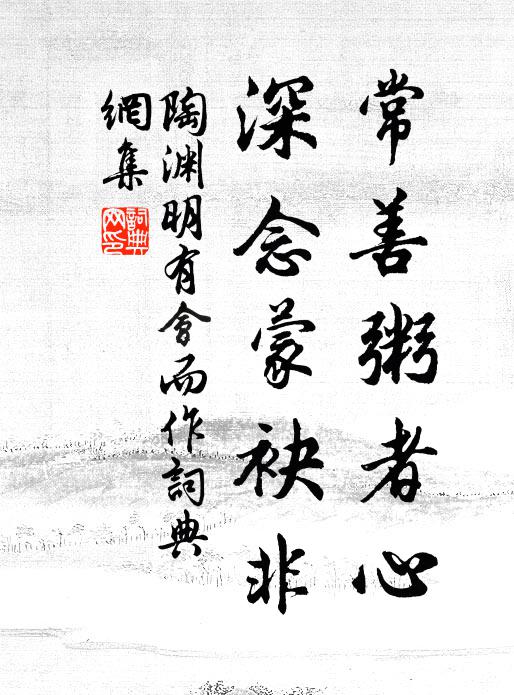 常善粥者心
深念蒙袂非
陶渊明有會而作詞典
網集
詞典
网印